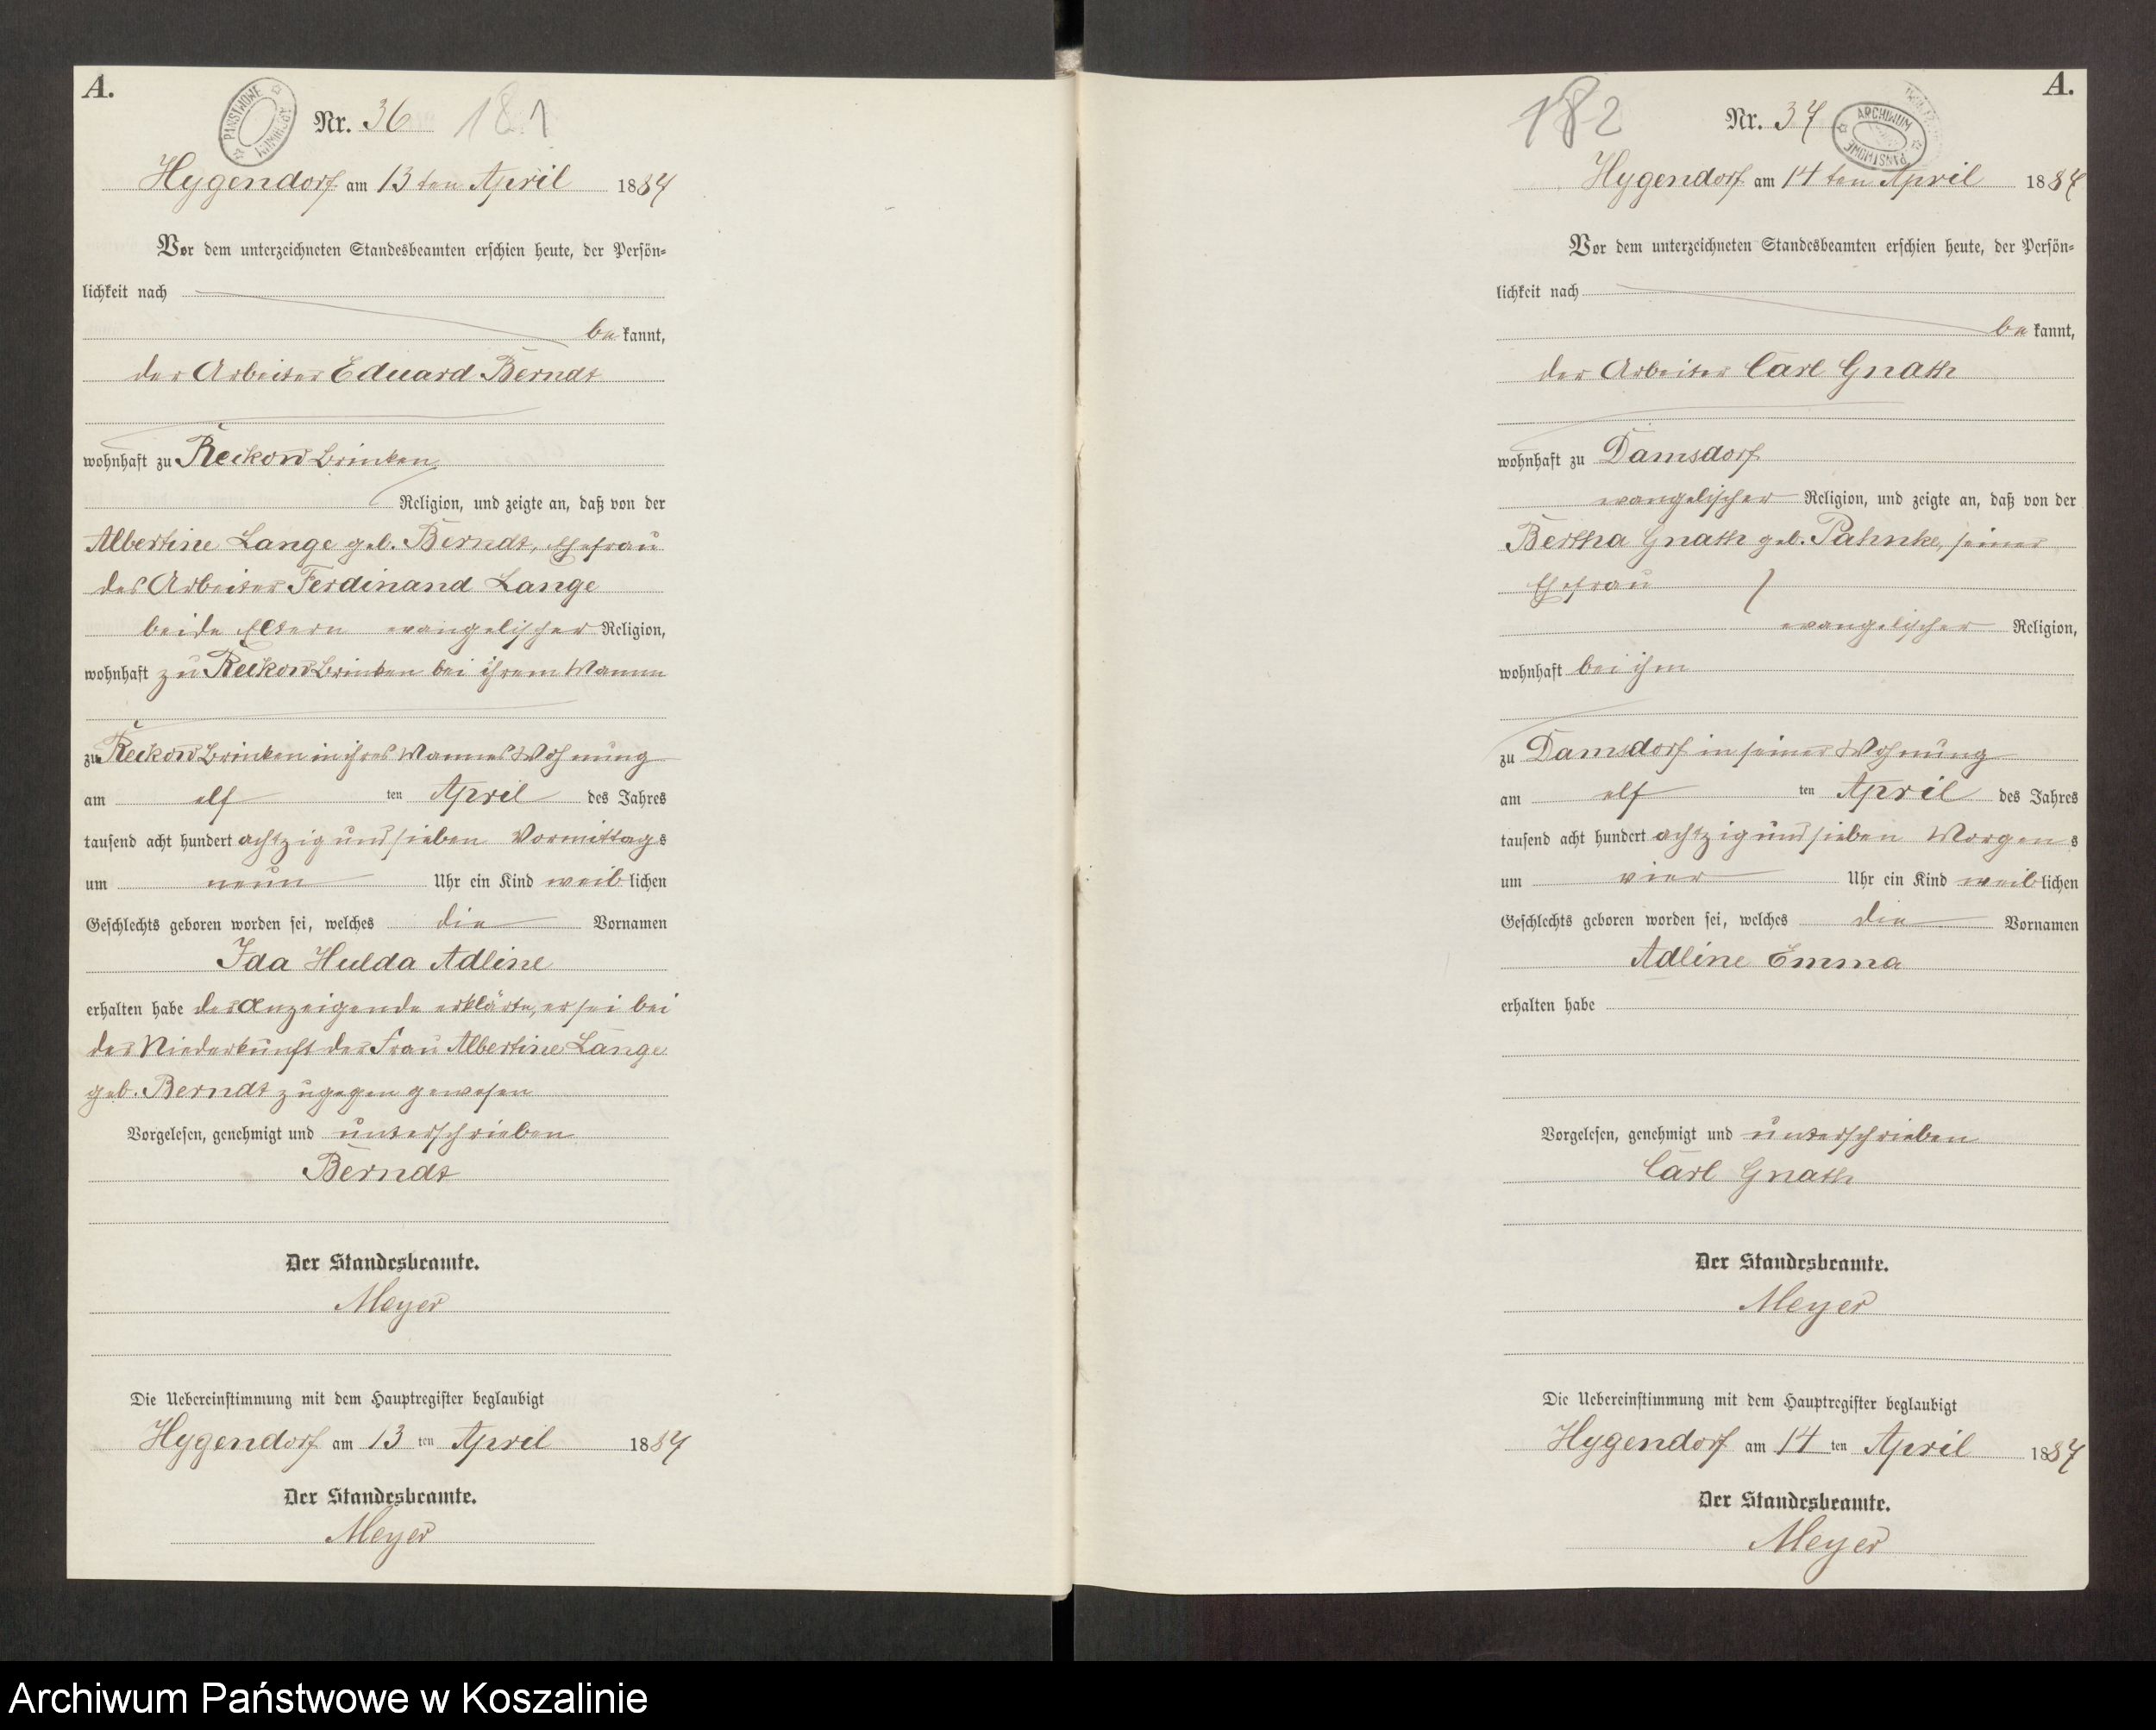 A.
PAŃSTWOWE ARCHIWUM
Nr. 36 181
Hygendorf am 13ten April 1887
Vor dem unterzeichneten Standesbeamten erschien heute, der Persön-
lichkeit nach
bekannt,
der Arbeiter Eduard Berndt
wohnhaft zu Reckowbrinken
Religion, und zeigte an, daß von der
Albertine Lange geb. Berndt, Ehefrau
des Arbeiter Ferdinand Lange
beide Eltern evangelischer Religion,
wohnhaft zu Reckowbrinken bei ihrem Mann
zu Reckowbrinken in ihres Mannes Wohnung
am elf ten April des Jahres
tausend acht hundert achtzig und sieben Vormittags
um neun Uhr ein Kind weiblichen
Geschlechts geboren worden sei, welches die Vornamen
Ida Hulda Adline
erhalten habe der Anzeigende erklärte, er sei bei
der Niederkunft der Frau Albertine Lange
geb. Berndt zugegen gewesen
Vorgelesen, genehmigt und unterschrieben
Berndt
Der Standesbeamte.
Meyer
Die Uebereinstimmung mit dem Hauptregister beglaubigt
Hygendorf am 13 ten April 1887
Der Standesbeamte.
Meyer
A.
182 Nr. 37
ARCHIWUM PAŃSTWOWE
Hygendorf am 14ten April 1887
Vor dem unterzeichneten Standesbeamten erschien heute, der Persön-
lichkeit nach
bekannt,
der Arbeiter Carl Gnath
wohnhaft zu Damsdorf
evangelischer Religion, und zeigte an, daß von der
Bertha Gnath geb. Pahnke, seiner
Ehefrau
evangelischer Religion,
wohnhaft bei ihm
zu Damsdorf in seiner Wohnung
am elf ten April des Jahres
tausend acht hundert achtzig und sieben Morgens
um vier Uhr ein Kind weiblichen
Geschlechts geboren worden sei, welches die Vornamen
Adline Emma
erhalten habe
Vorgelesen, genehmigt und unterschrieben
Carl Gnath
Der Standesbeamte.
Meyer
Die Uebereinstimmung mit dem Hauptregister beglaubigt
Hygendorf am 14 ten April 1887
Der Standesbeamte.
Meyer
Archiwum Państwowe w Koszalinie